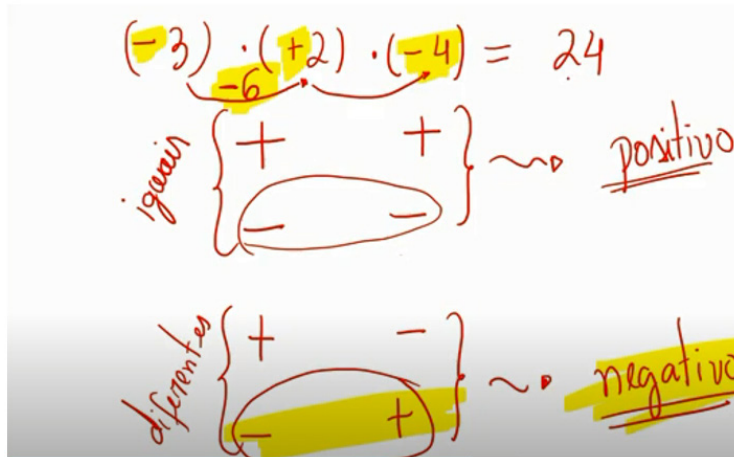 (-3) · (+2) · (-4) = 24
-6
iguais { + + } positivo
- -
diferentes { + - } negativo
- +